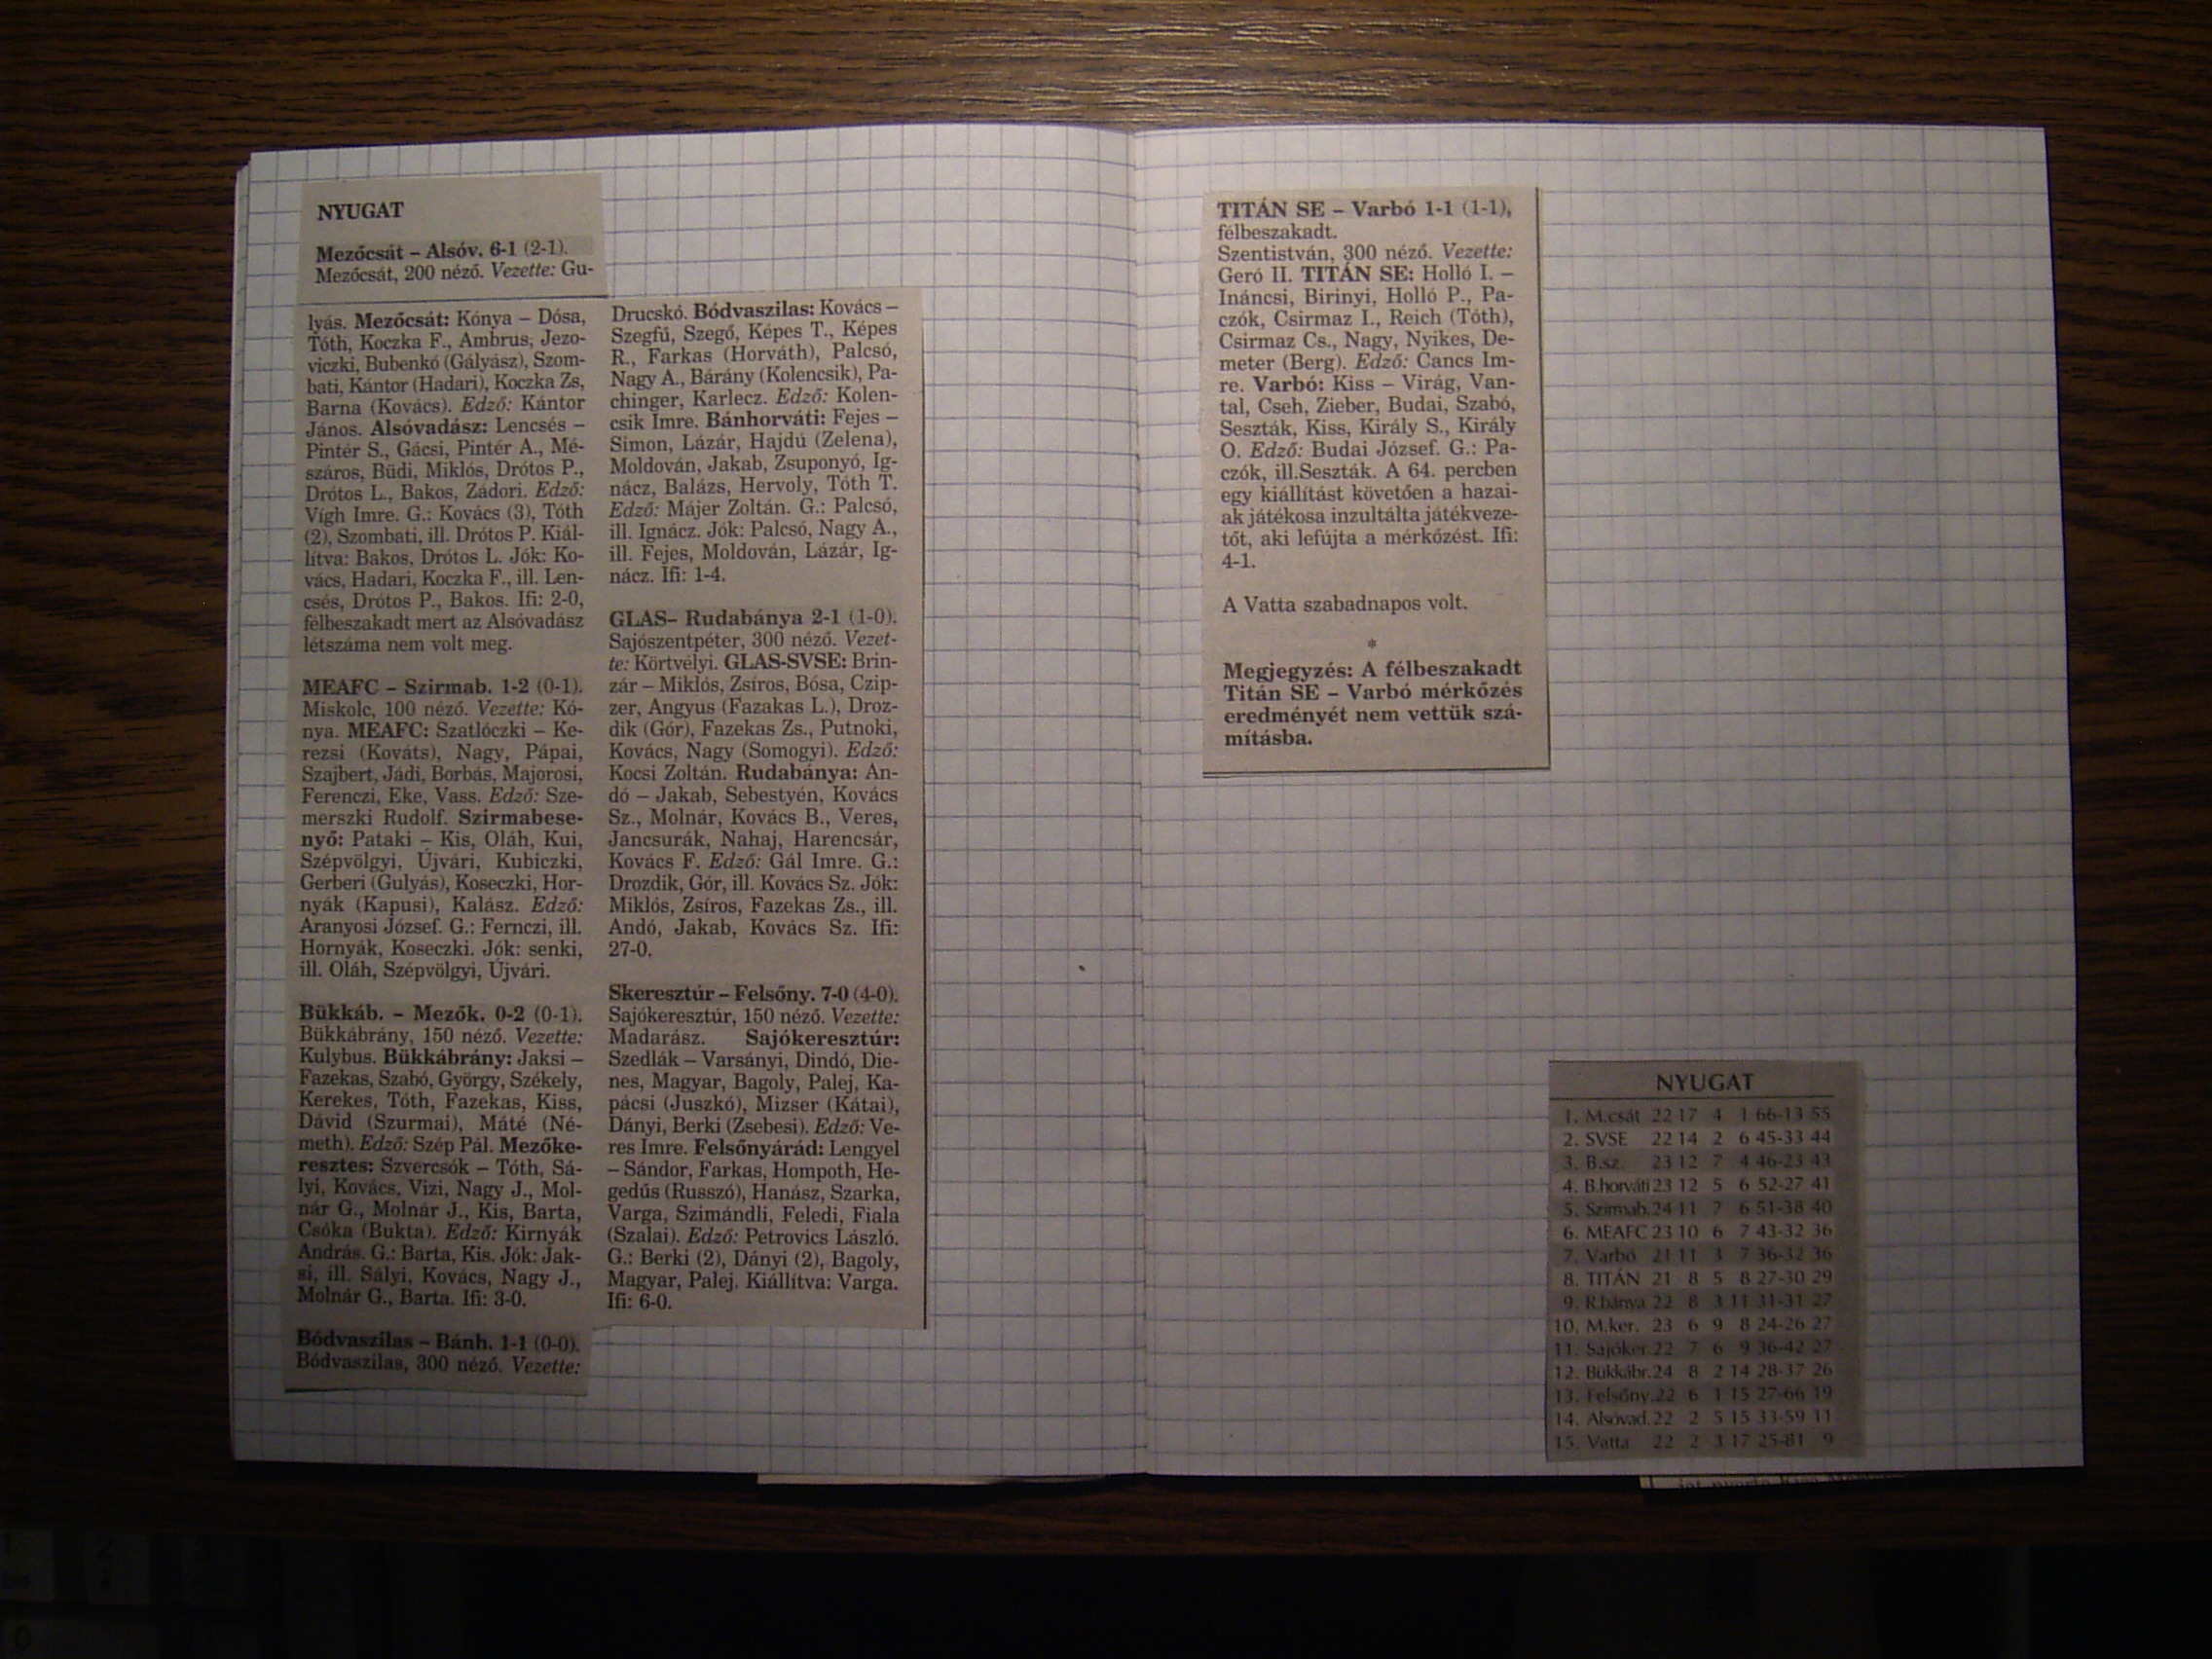 NYUGAT
Mezőcsát – Alsóv. 6-1 (2-1).
Mezőcsát, 200 néző. Vezette: Gu-
lyás. Mezőcsát: Kónya – Dósa,
Tóth, Koczka F., Ambrus, Jezo-
viczki, Bubenkó (Gályász), Szom-
bati, Kántor (Hadari), Koczka Zs,
Barna (Kovács). Edző: Kántor
János. Alsóvadász: Lencsés –
Pintér S., Gácsi, Pintér A., Mé-
száros, Büdi, Miklós, Drótos P.,
Drótos L., Bakos, Zádori. Edző:
Vígh Imre. G.: Kovács (3), Tóth
(2), Szombati, ill. Drótos P. Kiál-
lítva: Bakos, Drótos L. Jók: Ko-
vács, Hadari, Koczka F., ill. Len-
csés, Drótos P., Bakos. Ifi: 2-0,
félbeszakadt mert az Alsóvadász
létszáma nem volt meg.
MEAFC – Szirmab. 1-2 (0-1).
Miskolc, 100 néző. Vezette: Kó-
nya. MEAFC: Szatlóczki – Ke-
rezsi (Kováts), Nagy, Pápai,
Szajbert, Jádi, Borbás, Majorosi,
Ferenczi, Eke, Vass. Edző: Sze-
merszki Rudolf. Szirmabese-
nyő: Pataki – Kis, Oláh, Kui,
Szépvölgyi, Újvári, Kubiczki,
Gerberi (Gulyás), Koseczki, Hor-
nyák (Kapusi), Kalász. Edző:
Aranyosi József. G.: Fernczi, ill.
Hornyák, Koseczki. Jók: senki,
ill. Oláh, Szépvölgyi, Újvári.
Bükkáb. – Mezők. 0-2 (0-1).
Bükkábrány, 150 néző. Vezette:
Kulybus. Bükkábrány: Jaksi –
Fazekas, Szabó, György, Székely,
Kerekes, Tóth, Fazekas, Kiss,
Dávid (Szurmai), Máté (Né-
meth). Edző: Szép Pál. Mezőke-
resztes: Szvercsók – Tóth, Sá-
lyi, Kovács, Vizi, Nagy J., Mol-
nár G., Molnár J., Kis, Barta,
Csóka (Bukta). Edző: Kirnyák
András. G.: Barta, Kis. Jók: Jak-
si, ill. Sályi, Kovács, Nagy J.,
Molnár G., Barta. Ifi: 3-0.
Bódvaszilas – Bánh. 1-1 (0-0).
Bódvaszilas, 300 néző. Vezette:
Drucskó. Bódvaszilas: Kovács –
Szegfű, Szegő, Képes T., Képes
R., Farkas (Horváth), Palcsó,
Nagy A., Bárány (Kolencsik), Pa-
chinger, Karlecz. Edző: Kolen-
csik Imre. Bánhorváti: Fejes –
Simon, Lázár, Hajdú (Zelena),
Moldován, Jakab, Zsuponyó, Ig-
nácz, Balázs, Hervoly, Tóth T.
Edző: Májer Zoltán. G.: Palcsó,
ill. Ignácz. Jók: Palcsó, Nagy A.,
ill. Fejes, Moldován, Lázár, Ig-
nácz. Ifi: 1-4.
GLAS– Rudabánya 2-1 (1-0).
Sajószentpéter, 300 néző. Vezet-
te: Körtvélyi. GLAS-SVSE: Brin-
zár – Miklós, Zsíros, Bósa, Czip-
zer, Angyus (Fazakas L.), Droz-
dik (Gór), Fazekas Zs., Putnoki,
Kovács, Nagy (Somogyi). Edző:
Kocsi Zoltán. Rudabánya: An-
dó – Jakab, Sebestyén, Kovács
Sz., Molnár, Kovács B., Veres,
Jancsurák, Nahaj, Harencsár,
Kovács F. Edző: Gál Imre. G.:
Drozdik, Gór, ill. Kovács Sz. Jók:
Miklós, Zsíros, Fazekas Zs., ill.
Andó, Jakab, Kovács Sz. Ifi:
27-0.
Skeresztúr – Felsőny. 7-0 (4-0).
Sajókeresztúr, 150 néző. Vezette:
Madarász. Sajókeresztúr:
Szedlák – Varsányi, Dindó, Die-
nes, Magyar, Bagoly, Palej, Ka-
pácsi (Juszkó), Mizser (Kátai),
Dányi, Berki (Zsebesi). Edző: Ve-
res Imre. Felsőnyárád: Lengyel
– Sándor, Farkas, Hompoth, He-
gedűs (Russzó), Hanász, Szarka,
Varga, Szimándli, Feledi, Fiala
(Szalai). Edző: Petrovics László.
G.: Berki (2), Dányi (2), Bagoly,
Magyar, Palej. Kiállítva: Varga.
Ifi: 6-0.
TITÁN SE – Varbó 1-1 (1-1),
félbeszakadt.
Szentistván, 300 néző. Vezette:
Geró II. TITÁN SE: Holló I. –
Ináncsi, Birinyi, Holló P., Pa-
czók, Csirmaz I., Reich (Tóth),
Csirmaz Cs., Nagy, Nyikes, De-
meter (Berg). Edző: Cancs Im-
re. Varbó: Kiss – Virág, Van-
tal, Cseh, Zieber, Budai, Szabó,
Sesztak, Kiss, Király S., Király
O. Edző: Budai József. G.: Pa-
czók, ill.Seszták. A 64. percben
egy kiállítást követően a hazai-
ak játékosa inzultálta játékveze-
tőt, aki lefújta a mérkőzést. Ifi:
4-1.
A Vatta szabadnapos volt.
*
Megjegyzés: A félbeszakadt
Titán SE – Varbó mérkőzés
eredményét nem vettük szá-
mításba.
NYUGAT
1. M.csát 22 17 4 1 66-13 55
2. SVSE 22 14 2 6 45-33 44
3. B.sz. 23 12 7 4 46-23 43
4. B.horváti 23 12 5 6 52-27 41
5. Szirmab. 24 11 7 6 51-38 40
6. MEAFC 23 10 6 7 43-32 36
7. Varbó 21 11 3 7 36-32 36
8. TITÁN 21 8 5 8 27-30 29
9. R.bánya 22 8 3 11 31-31 27
10. M.ker. 23 6 9 8 24-26 27
11. Sajóker. 22 7 6 9 36-42 27
12. Bükkábr. 24 8 2 14 28-37 26
13. Felsőny. 22 6 1 15 27-66 19
14. Alsóvad. 22 2 5 15 33-59 11
15. Vatta 22 2 3 17 25-81 9